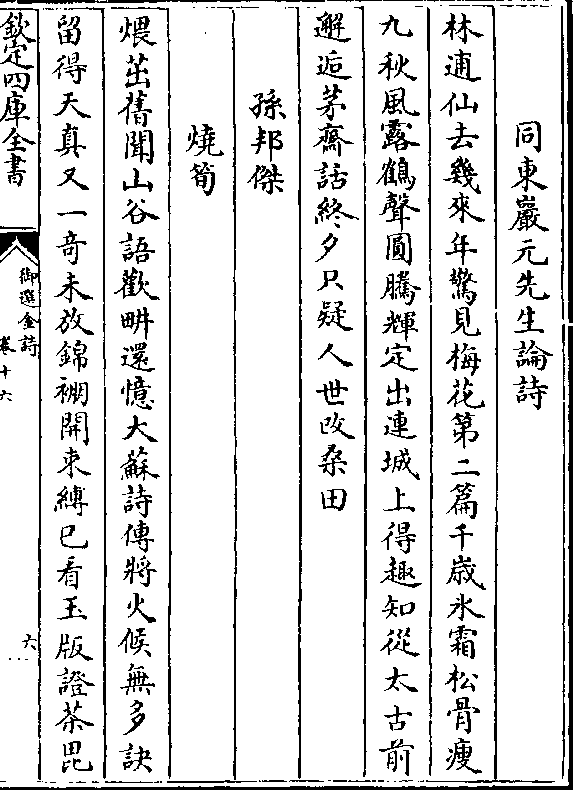 同東巖元先生論詩
林逋仙去幾來年驚見梅花第二篇千歲氷霜松骨瘦
九秋風露鶴聲圓騰輝定出連城上得趣知從太古前
邂逅茅齋話終夕只疑人世改桑田
孫邦傑
燒筍
煨茁舊聞山谷語歡畊還憶大蘇詩傳將火候無多訣
留得天真又一竒未放錦裯開束縛已看玉版證茶毘
欽定四庫全書
御選金詩
卷十六
六